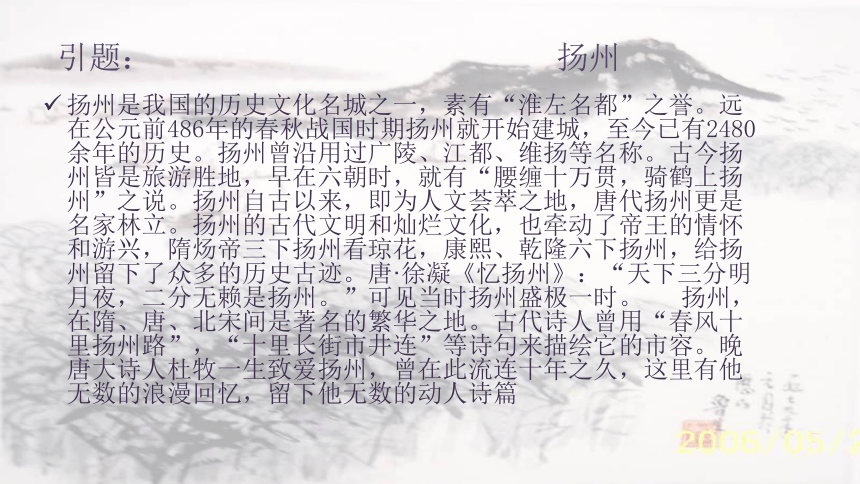 引题： 扬州
✓ 扬州是我国的历史文化名城之一，素有“淮左名都”之誉。远
在公元前486年的春秋战国时期扬州就开始建城，至今已有2480
余年的历史。扬州曾沿用过广陵、江都、维扬等名称。古今扬
州皆是旅游胜地，早在六朝时，就有“腰缠十万贯，骑鹤上扬
州”之说。扬州自古以来，即为人文荟萃之地，唐代扬州更是
名家林立。扬州的古代文明和灿烂文化，也牵动了帝王的情怀
和游兴，隋炀帝三下扬州看琼花，康熙、乾隆六下扬州，给扬
州留下了众多的历史古迹。唐·徐凝《忆扬州》：“天下三分明
月夜，二分无赖是扬州。”可见当时扬州盛极一时。 扬州，
在隋、唐、北宋间是著名的繁华之地。古代诗人曾用“春风十
里扬州路”，“十里长街市井连”等诗句来描绘它的市容。晚
唐大诗人杜牧一生致爱扬州，曾在此流连十年之久，这里有他
无数的浪漫回忆，留下他无数的动人诗篇
2006/05/2